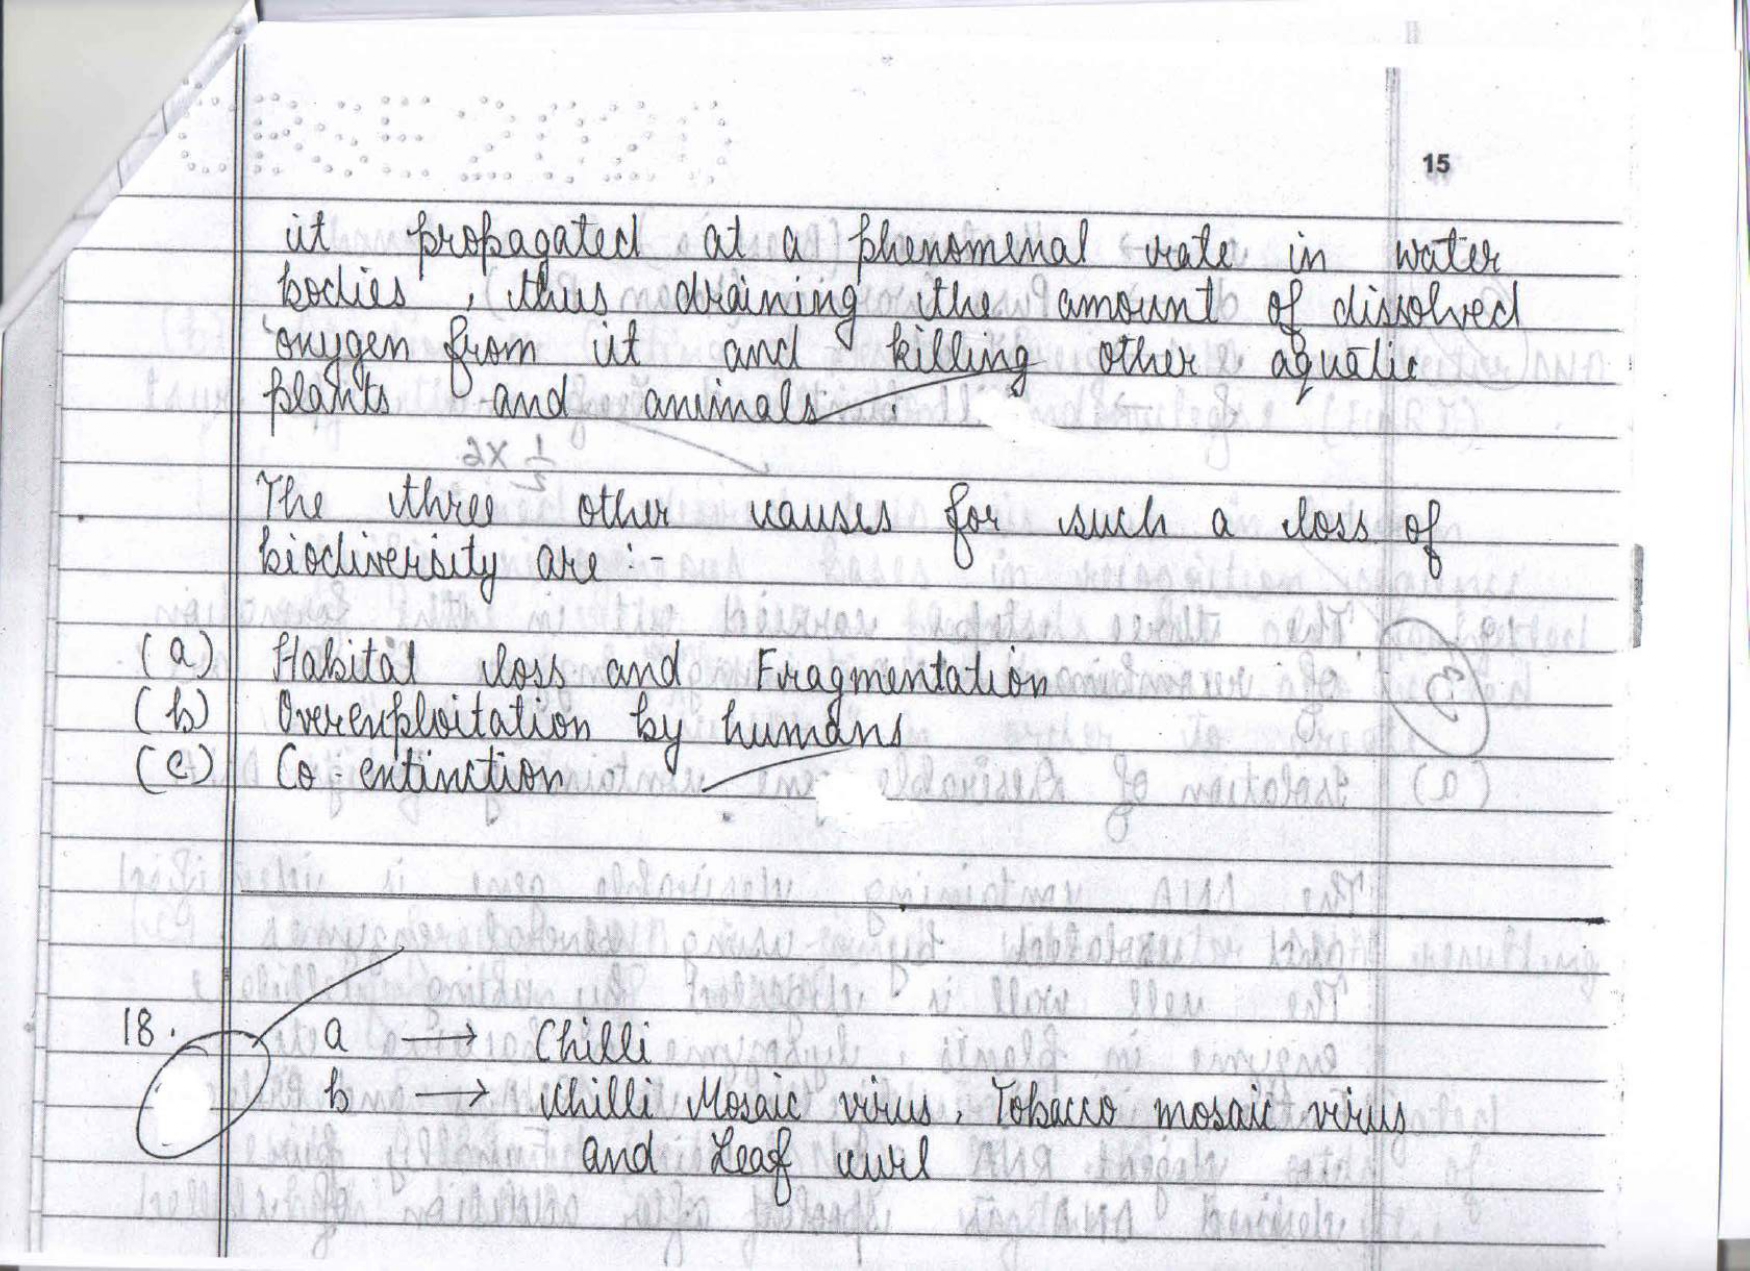 CBSE 2020
15
it propagated at a phenomenal rate in water
bodies, thus draining the amount of dissolved
oxygen from it and killing other aquatic
plants and animals.
The three other causes for such a loss of
biodiversity are :-
(a) Habitat loss and Fragmentation
(b) Overexploitation by humans
(c) Co-extinction
18. a → Chilli
b → Chilli Mosaic virus, Tobacco mosaic virus
and Leaf curl